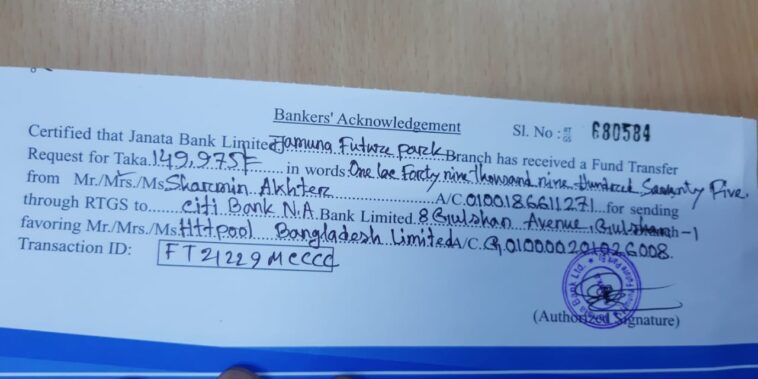 Bankers' Acknowledgement
Sl. No : 680584
Certified that Janata Bank Limited Jamuna Future Park Branch has received a Fund Transfer
Request for Taka 149,975/= in words One lac Forty nine thousand nine Hundred Seventy Five
from Mr./Mrs./Ms Sharmin Akhter A/C. 0100186611271 for sending
through RTGS to Citi Bank N.A. Bank Limited. 8 Gulshan Avenue, Gulshan-1
favoring Mr./Mrs./Ms. Httpool Bangladesh Limited A/C. 010000201026008.
Transaction ID: FT21229MCCCC
(Authorized Signature)